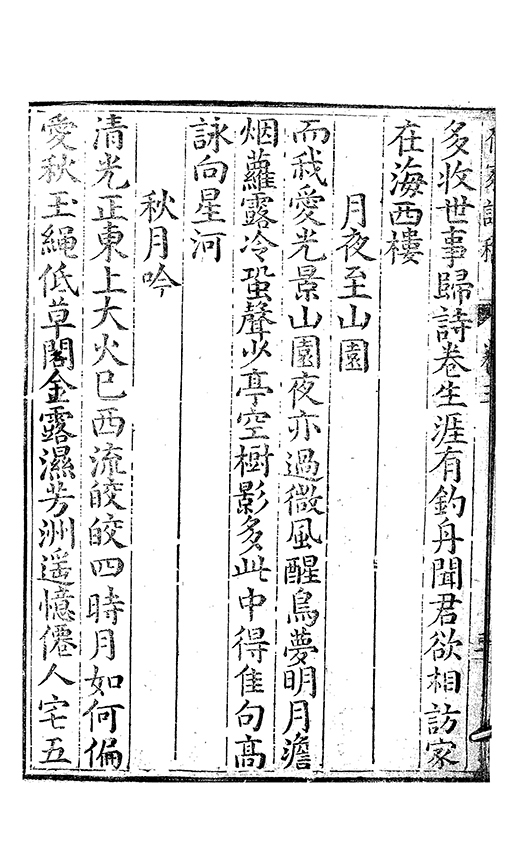 多收世事歸詩卷生涯有釣舟聞君欲相訪家
在海西樓
月夜至山園
而我愛光景山園夜亦過微風醒鳥夢明月澹
烟蘿露冷蛩聲少亭空樹影多此中得佳句高
詠向星河
秋月吟
清光正東上大火已西流皎皎四時月如何偏
愛秋玉繩低草閣金露濕芳洲遥憶僊人宅五